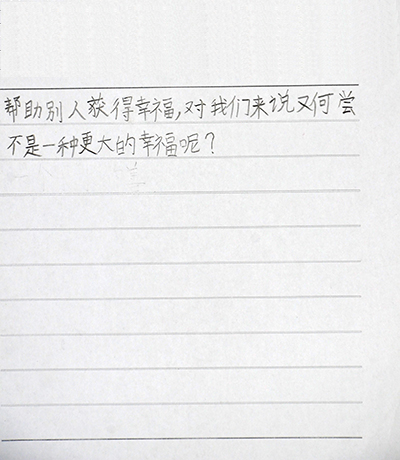 帮助别人获得幸福,对我们来说又何尝
不是一种更大的幸福呢?